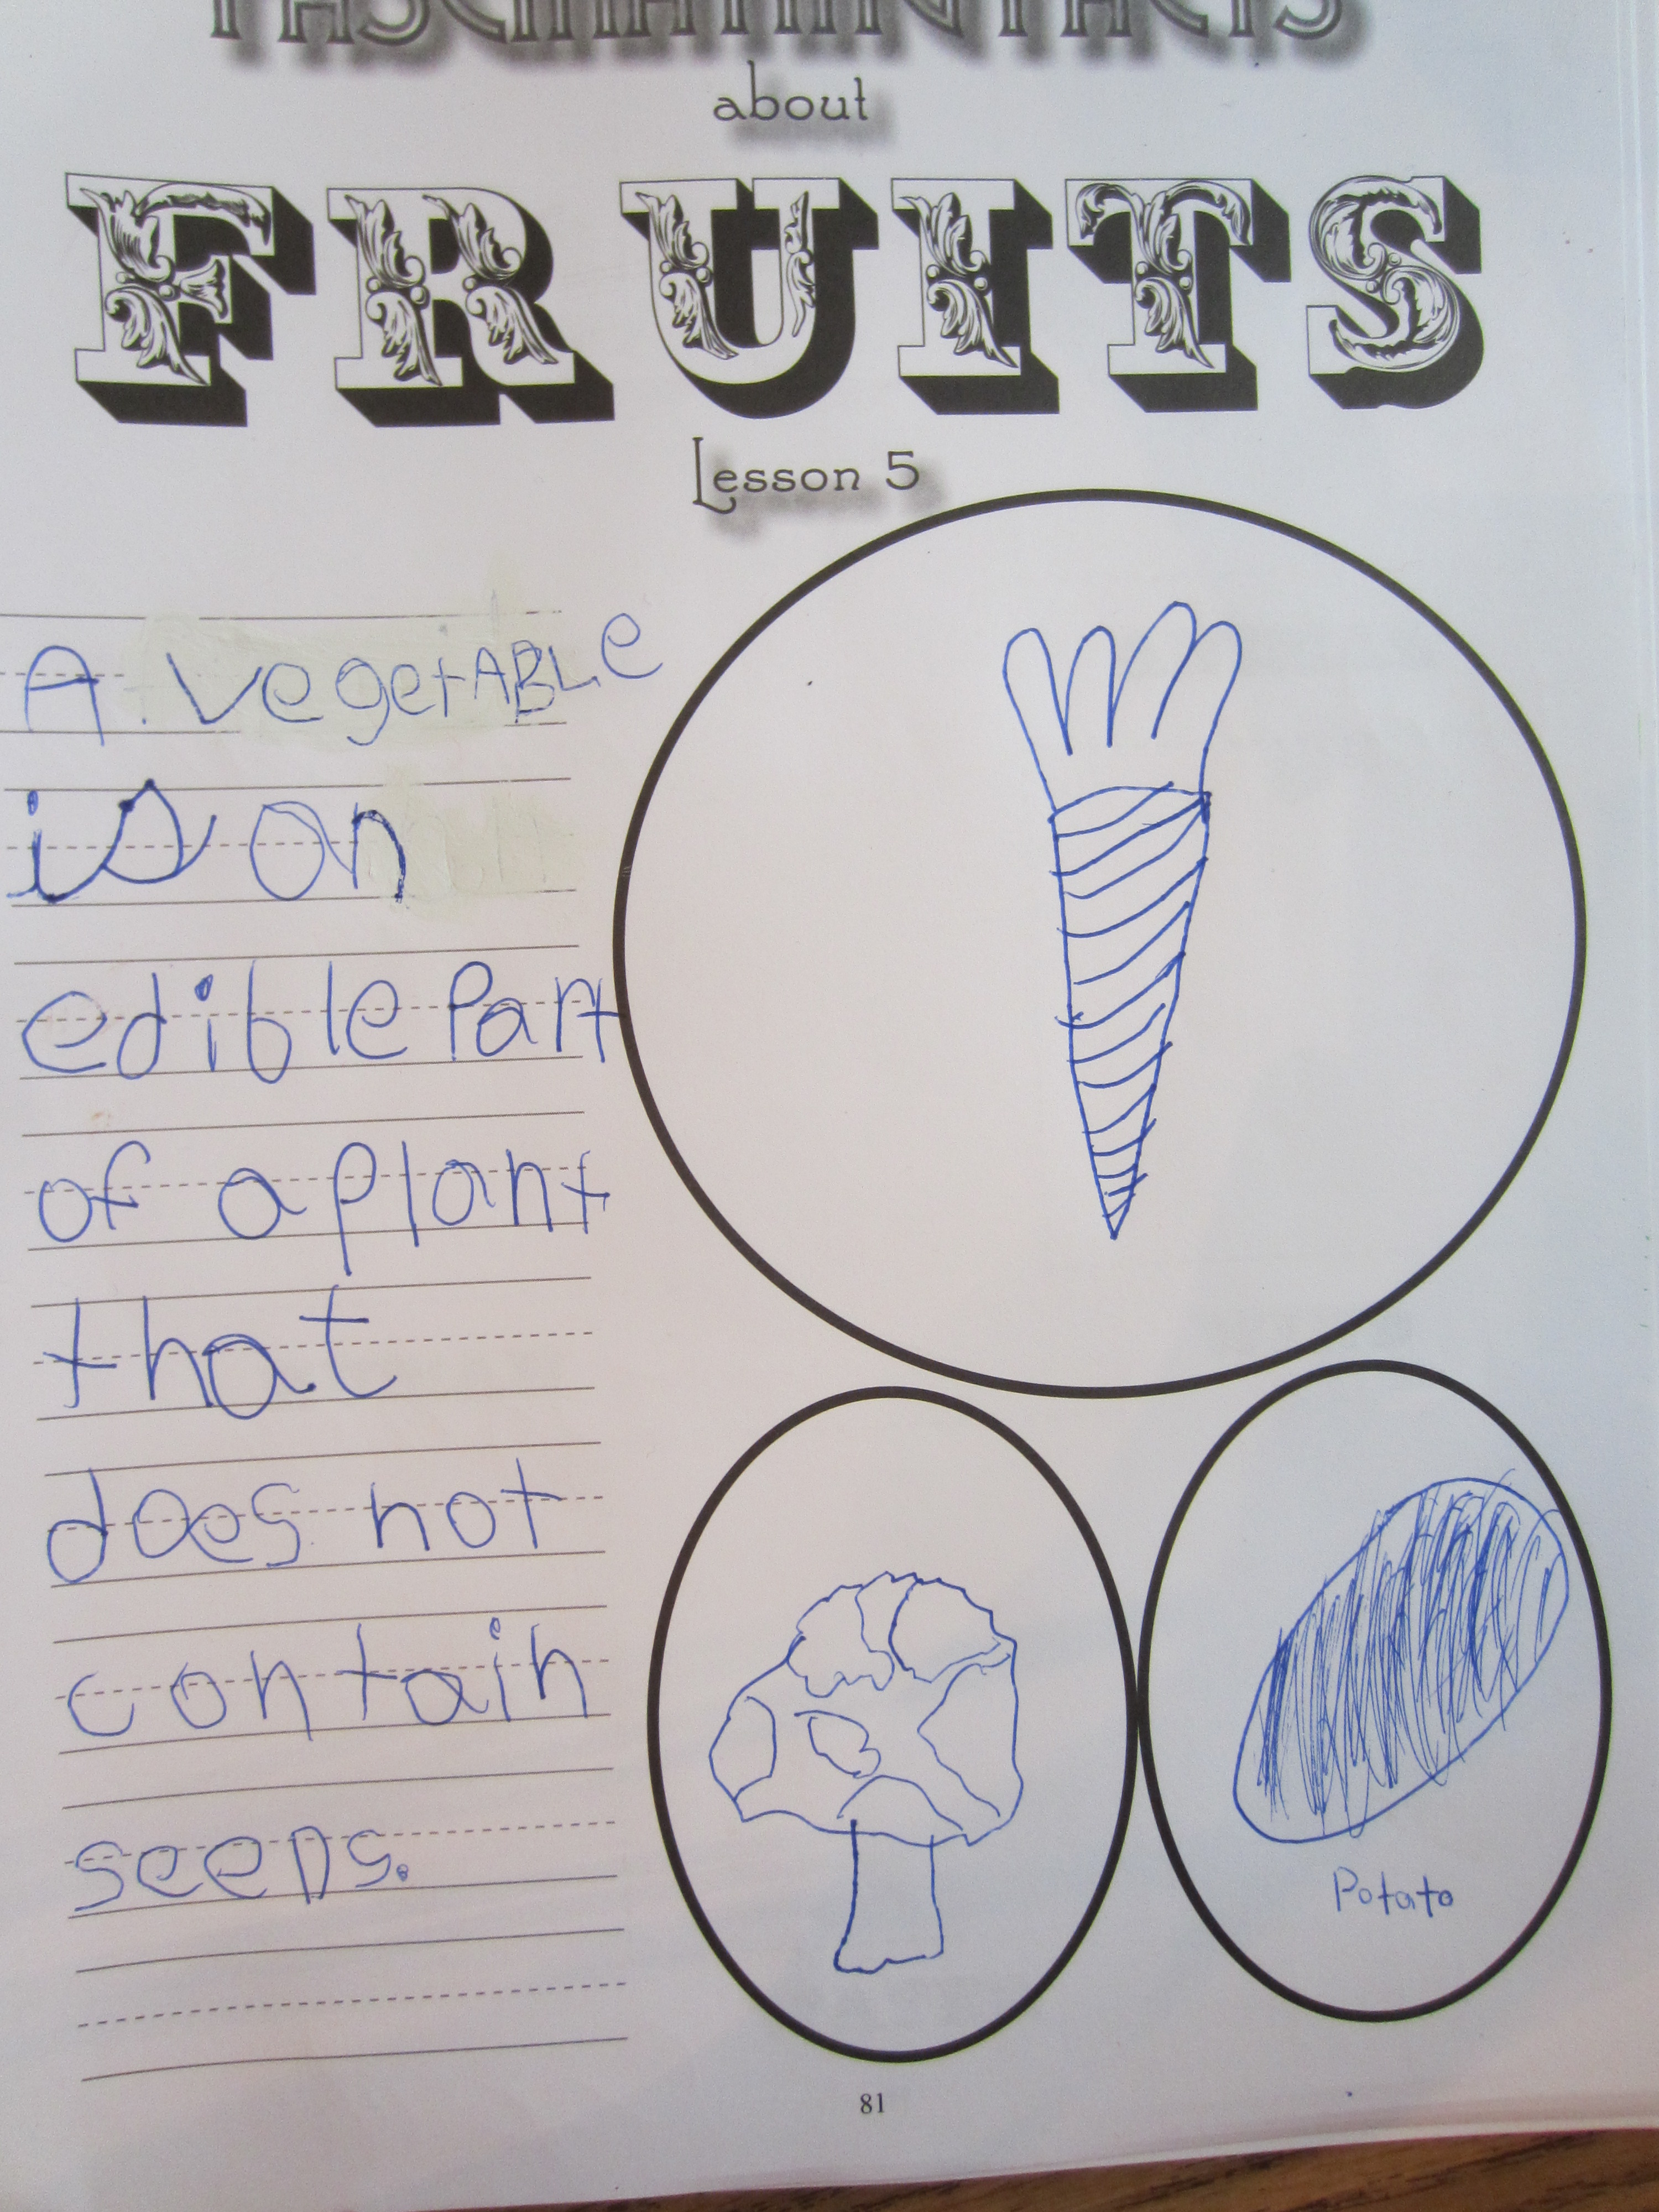 about
FRUITS
Lesson 5
A vegetABLe
is an
edible Part
of a plant
that
does not
contain
seeDs.
Potato
81